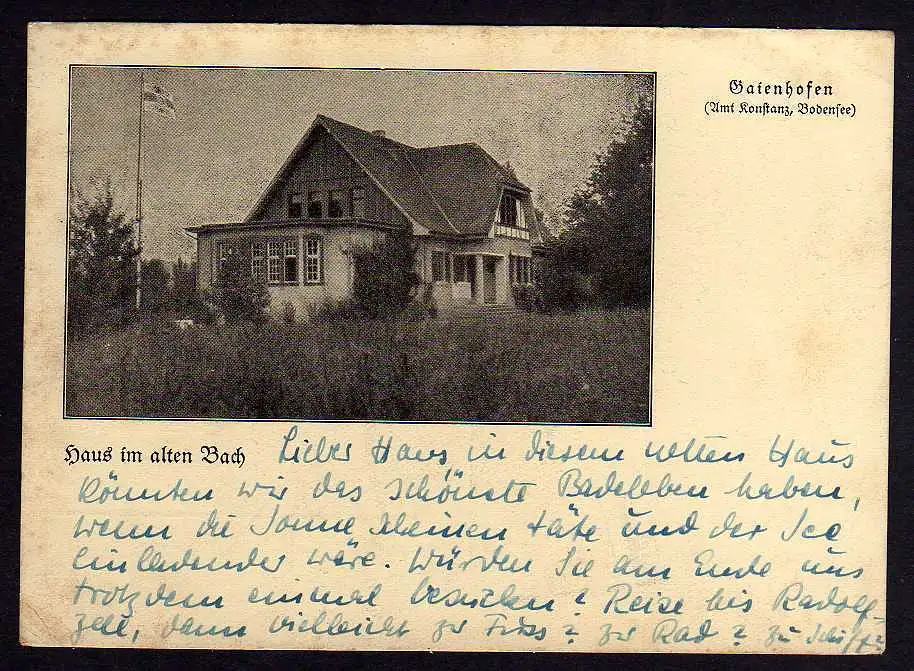 Gaienhofen
(Amt Konstanz, Bodensee)
Haus im alten Bach
Lieber Hans, in diesem netten Haus
könnten wir das schönste Badeleben haben,
wenn die Sonne scheinen täte und der See
einladender wäre. Würden Sie am Ende uns
trotzdem einmal besuchen? Reise bis Radolf-
zell, dann vielleicht zu Fuss? zu Rad? zu Schiff?